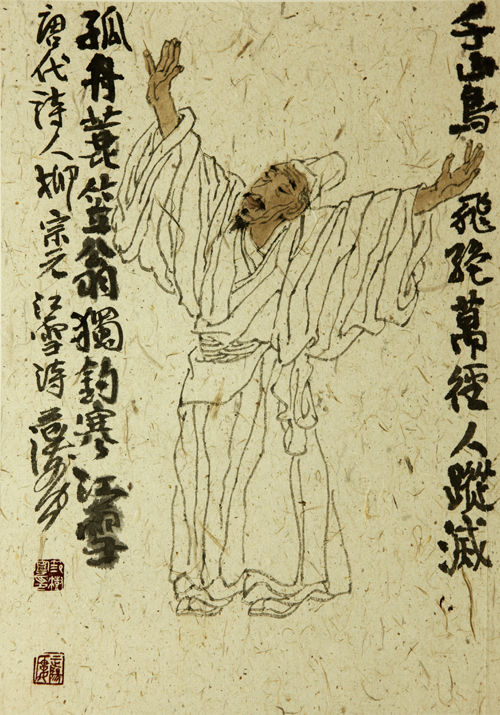 千山鳥飛絕萬徑人蹤滅
孤舟蓑笠翁獨釣寒江雪
唐代詩人柳宗元江雪詩